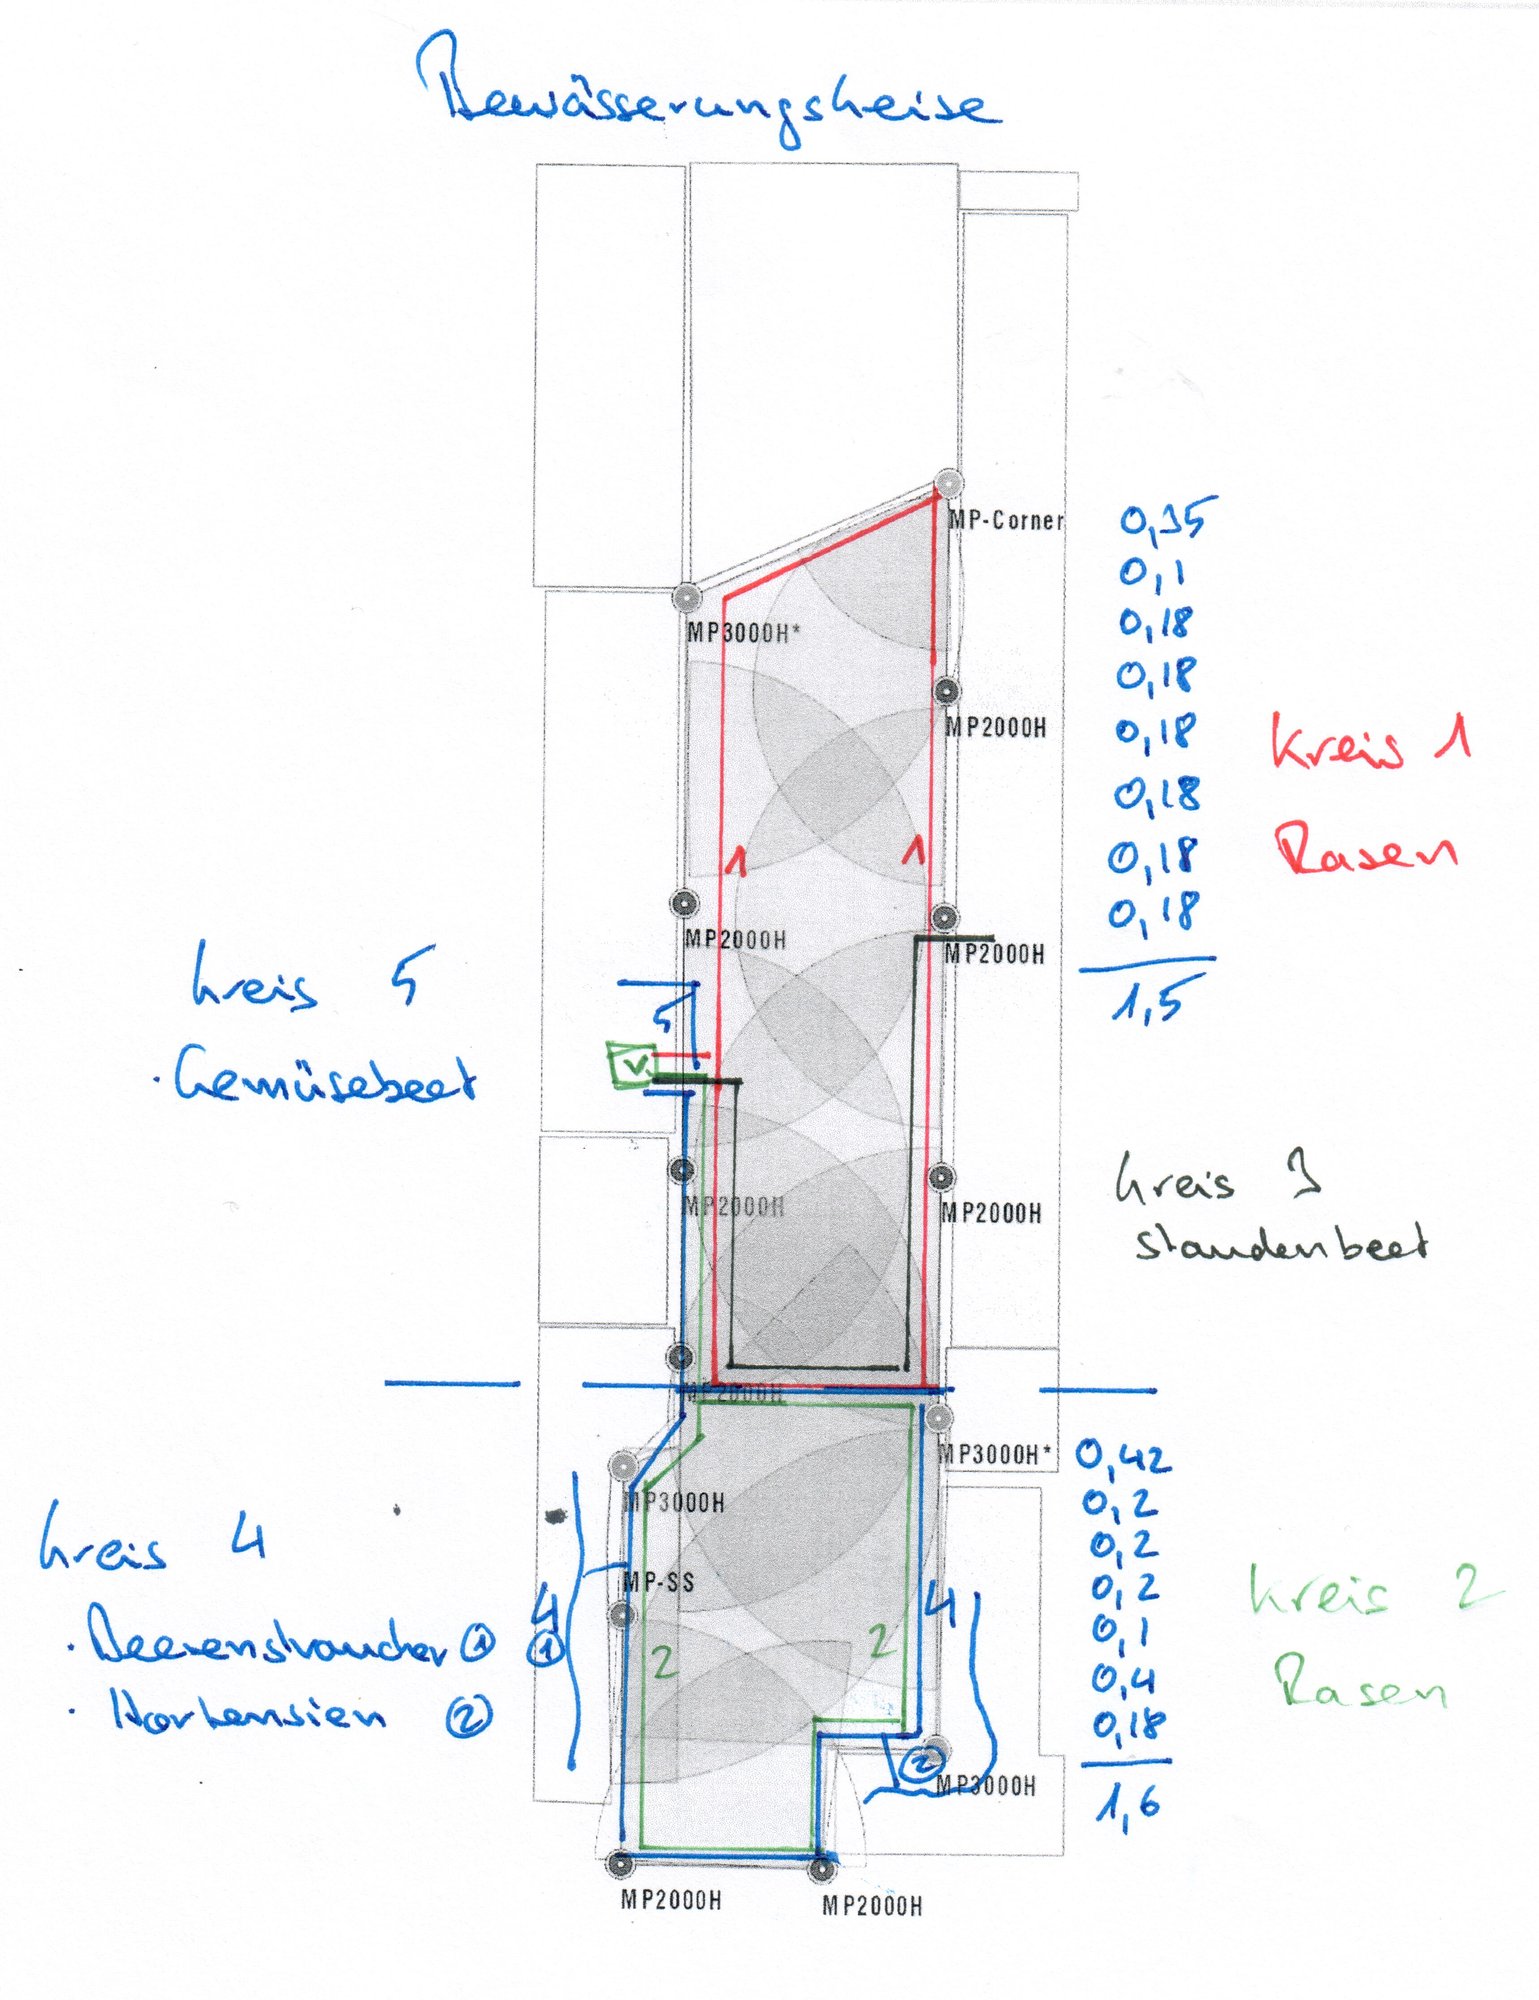 Bewässerungskeise
MP-Corner
0,35
0,1
0,18
0,18
0,18
0,18
0,18
0,18
1,5
Kreis 1
Rasen
MP3000H*
MP2000H
1
1
MP2000H
MP2000H
Kreis 5
· Gemüsebeet
5
V
MP2000H
MP2000H
Kreis 3
Staudenbeet
MP2000H
MP3000H*
0,42
0,2
0,2
0,2
0,1
0,4
0,18
1,6
Kreis 2
Rasen
MP3000H
MP-SS
Kreis 4
· Beerensträucher ①
· Hortensien ②
4
①
2
2
4
②
MP3000H
MP2000H
MP2000H